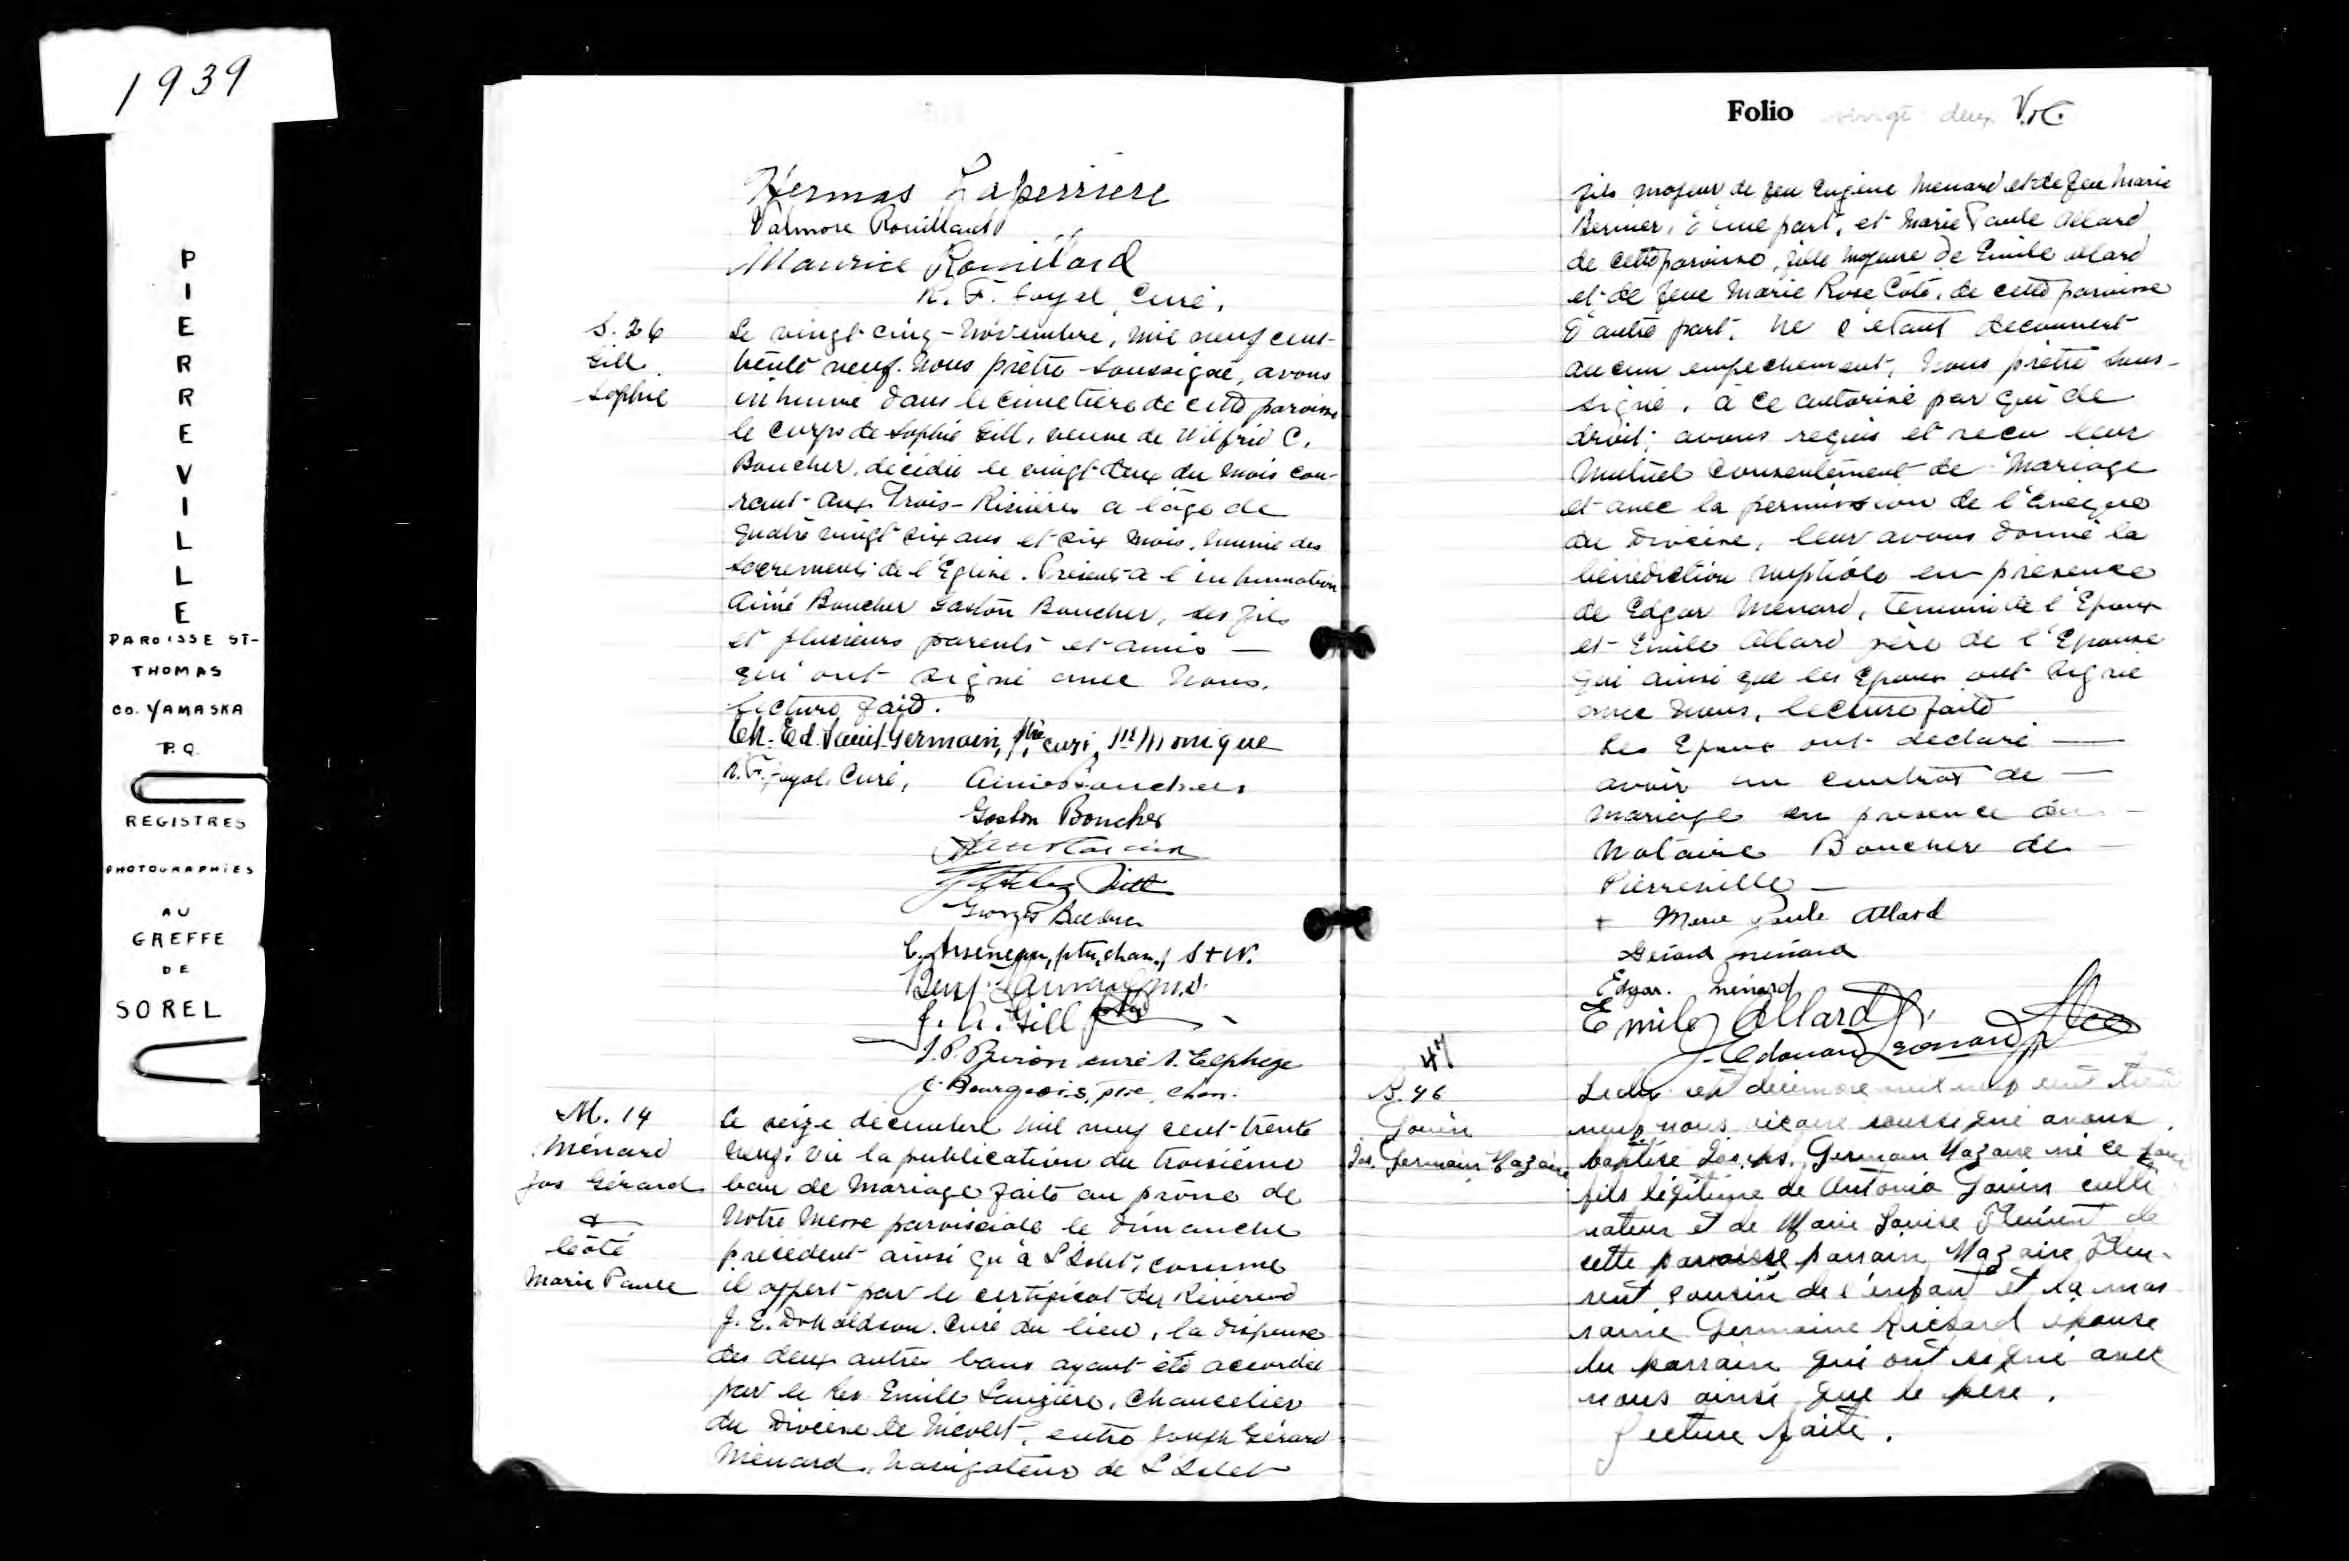 1939
PIERREVILLE
PAROISSE ST-
THOMAS
CO. YAMASKA
P.Q.
REGISTRES
PHOTOGRAPHIES
AU
GREFFE
DE
SOREL
Hermas Laperriere
Valmore Rouillard
Maurice Rouillard
Curé.
S. 26
Gill
Sophie
Le vingt cinq Novembre, mil neuf cent
trente neuf. Nous prêtre soussigné, avons
inhumé dans le cimetière de cette paroisse
le corps de Sophie Gill, veuve de Wilfrid C.
Boucher, décédée le vingt deux du mois cou-
rant aux Trois-Rivières a l'âge de
quatre vingt six ans et six mois, munie des
sacrements de l'Eglise. Présents a l'inhumation
Aimé Boucher Gaston Boucher, ses fils
et plusieurs parents et amis —
qui ont signé avec Nous.
Lecture faite.
Ch. Ed. Saint-Germain, ptre curé, Ste Monique
Curé, Aimé Boucher
Gaston Boucher
Georges
ptre, chan., S+N.
J. A. Gill ptre
curé St. Elphège
J. Bourgeois, ptre, chan.
M. 14
Ménard
Jos Gérard
&
Côté
Marie Paule
Ce seize décembre mil neuf cent trente
neuf. Vu la publication du troisième
ban de Mariage faite au prône de
Notre Messe paroissiale le dimanche
précédent ainsi qu'à L'Islet, comme
il appert par le certificat du Révérend
J. E. Donaldson. Curé du lieu, la dispense
des deux autres bans ayant été accordée
par le Rev. Emile Chancelier
du Diocèse de Nicolet, entre Joseph Gérard
Ménard, Navigateur de L'Islet
Folio vingt deux
fils majeur de feu Eugène Ménard et de feu Marie
Bernier, d'une part, et Marie Paule Allard
de cette paroisse, fille majeure de Emile Allard
et de feue Marie Rose Coté, de cette paroisse
d'autre part. Ne s'étant découvert
aucun empechement, Nous prêtre sous-
signé, a ce autorisé par qui de
droit, avons requis et reçu leur
Mutuel Consentement de Mariage
et avec la permission de l'Evêque
du Diocèse, leur avons donné la
bénédiction nuptiale en présence
de Edgar Ménard, témoin de l'Epoux
et Emile Allard père de l'Epouse
qui ainsi que les Epoux ont signé
avec Nous, lecture faite
Les Epoux ont déclaré —
avoir un contrat de —
mariage en présence du —
Notaire Boucher de —
Pierreville —
+ Marie Paule Allard
Gérard Ménard
Edgar. Ménard
Emile Allard
J. Edouard
47
B. 46
Jos. Germain Nazaire
décembre mil neuf cent trente
neuf nous vicaire soussigné avons
baptisé Joseph, Germain Nazaire né ce jour
fils légitime de Antonio culti
vateur et de Marie Louise de
cette paroisse parrain Nazaire
cousin de l'enfant et la mar
raine Germaine épouse
du parrain qui ont signé avec
nous ainsi que le père.
Lecture faite.